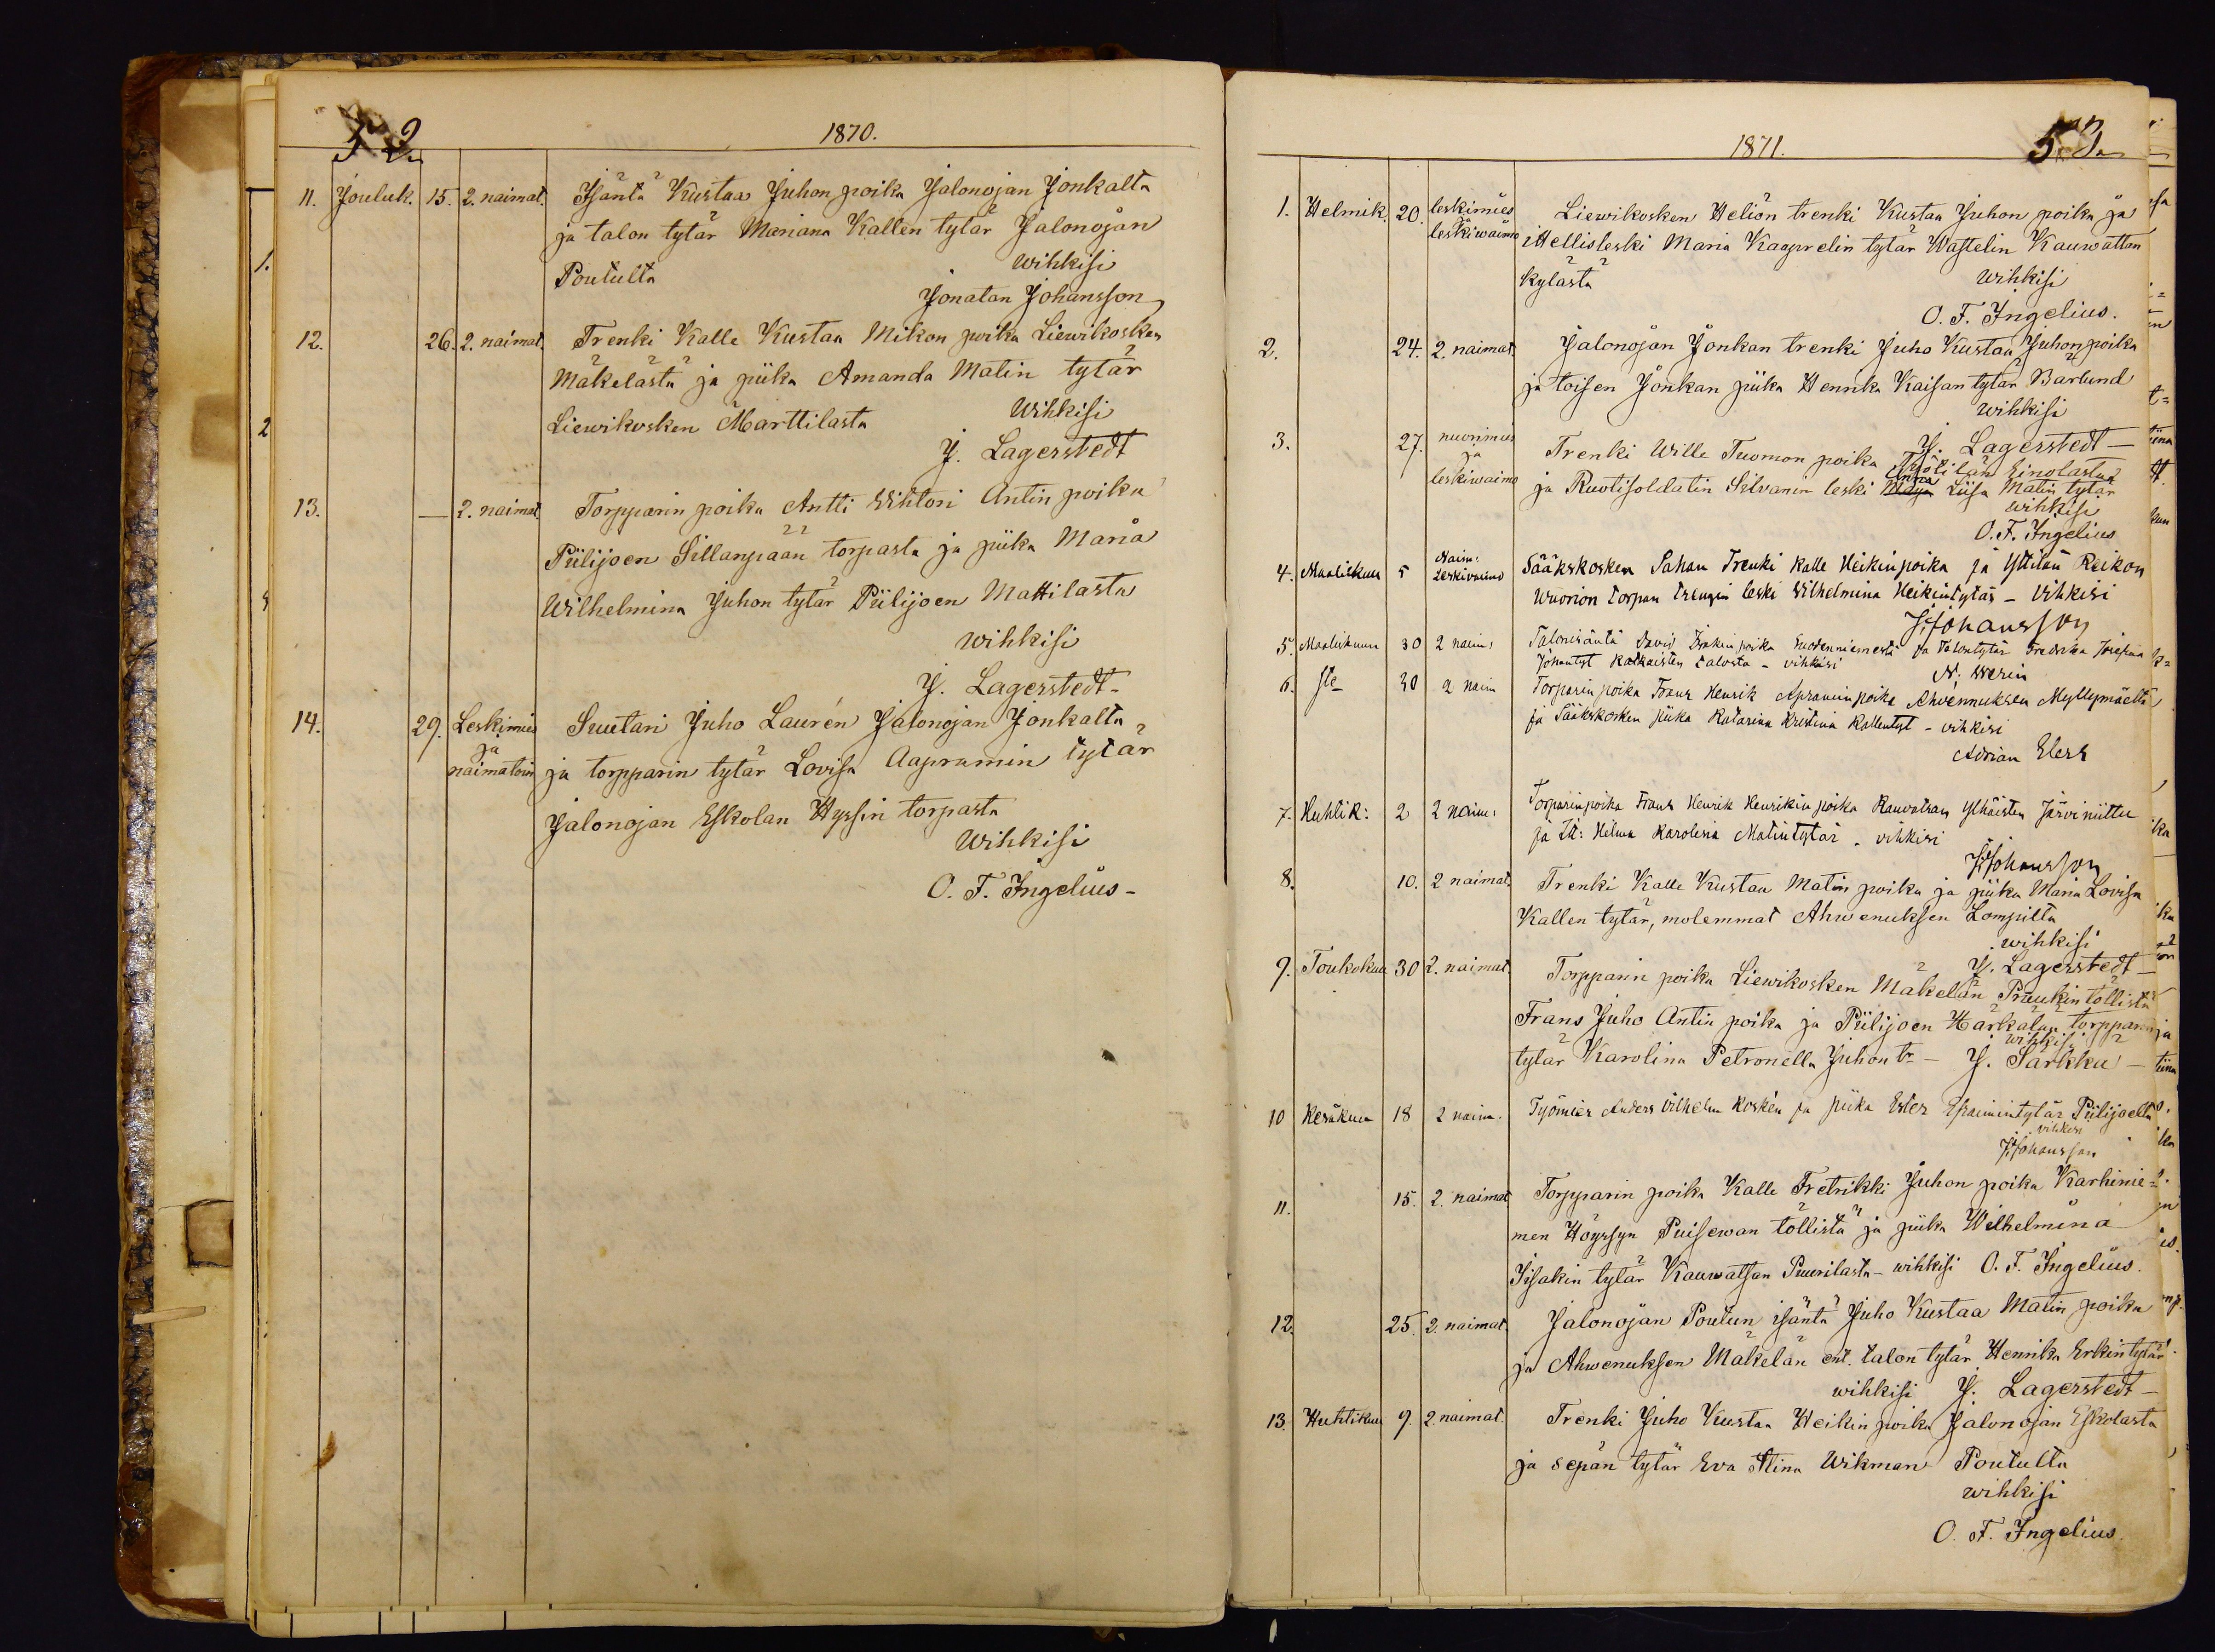 52
1870.
11. Jouluk. 15. 2. naimat. Isäntä Kustaa Juhon poika Jalonojan Jonkalta
ja talon tytär Mariana Kallen tytär Jalonojan
Poutulta wihkisi
Jonatan Johansson
12. 26. 2. naimat. Trenki Kalle Kustaa Mikon poika Liewikosken
Mäkelästä ja piika Amanda Matin tytär
Liewikosken Marttilasta Wihkisi
J. Lagerstedt
13. — 2. naimat. Torpparin poika Antti Wihtori Antin poika
Piilijoen Sillanpään torpasta ja piika Maria
Wilhelmina Juhon tytär Piilijoen Mattilasta
wihkisi
J. Lagerstedt-
14. 29. Leskimies Suutari Juho Laurén Jalonojan Jonkalta
ja
naimatoin ja torpparin tytär Lovisa Aapramin tytär
Jalonojan Eskolan Hyssin torpasta
Wihkisi
O. F. Ingelius-
1871.
53
1. Helmik. 20. leskimies Liewikosken Heliön trenki Kustaa Juhon poika ja
leskiwaimo ittellisleski Maria Kaaprelin tytär Wastelin Kauwattan
kylästä wihkisi
O. F. Ingelius.
2. 24. 2. naimat. Jalonojan Jonkan trenki Juho Kustaa Juhon poika
ja toisen Jonkan piika Henrika Kaisan tytär Barlund
wihkisi
J. Lagerstedt—
3. 27. nuorimies Trenki Wille Tuomon poika Yttilän Einolasta
ja
leskiwaimo ja Ruotisoldatin Silvanin leski Anna Liisa Matin tytär
wihkisi
O. F. Ingelius
4. Maaliskuu 5 Naim: Sääkskosken Sahan Trenki Kalle Heikinpoika ja Yttilän Reikon
Leskivaimo Wuorion torpan trengin leski Wilhelmina Heikintytär – Vihkisi
J: Johansson
5. Maaliskuun 30 2 naim: Talonisäntä David Isakin poika Suodenniemestä ja Talontytär Fredrika Josefina
Johantyt Katkaisten talosta – vihkisi
N: Werin
6. 30 2 naim Torparin poika Frans Henrik Apramin poika Ahvennuksen Myllymäeltä
ja Sääkskosken piika Katarina Kristina Kallentyt – vihkisi
Adrian Elers
7. Huhtik: 2 2 naim: Torparinpoika Frans Henrik Henrikin poika Kauvatsan Yhäisten Järviniittu
ja Helma Karolina Matintytär – vihkisi
J: Johansson
8. 10. 2 naimat. Trenki Kalle Kustaa Matin poika ja piika Maria Lovisa
Kallen tytär, molemmat Ahwenuksen Lompilta
wihkisi
J. Lagerstedt—
9. Toukokuu 30 2. naimat. Torpparin poika Liewikosken Mäkelän Pruukin töllistä
Frans Juho Antin poika ja Piilijoen Härkälän torpparin
wihkisi
tytär Karolina Petronella Juhon tr – J. Särkkä —
10 Kesäkuu 18 2 naim. Työmies Anders Vilhelm Koskén ja piika Ester Efraimintytär Piilijoelta
vihkisi
J: Johansson
11. 15. 2. naimat Torpparin poika Kalle Fretrikki Juhon poika Karhinie=
men Höyssyn Puisewan töllistä ja piika Wilhelmina
Iisakin tytär Kauwatsan Puurilasta – wihkisi O. F. Ingelius.
12. 25. 2. naimat. Jalonojan Poutun isäntä Juho Kustaa Matin poika
ja Ahwenuksen Mäkelän ent. talon tytär Henrika Erkin tytär
wihkisi J. Lagerstedt—
13. Huhtikuu 9. 2. naimat. Trenki Juho Kustaa Heikin poika Jalonojan Eskolasta
ja sepän tytär Eva Stina Wikman Poutulta
wihkisi
O. F. Ingelius.